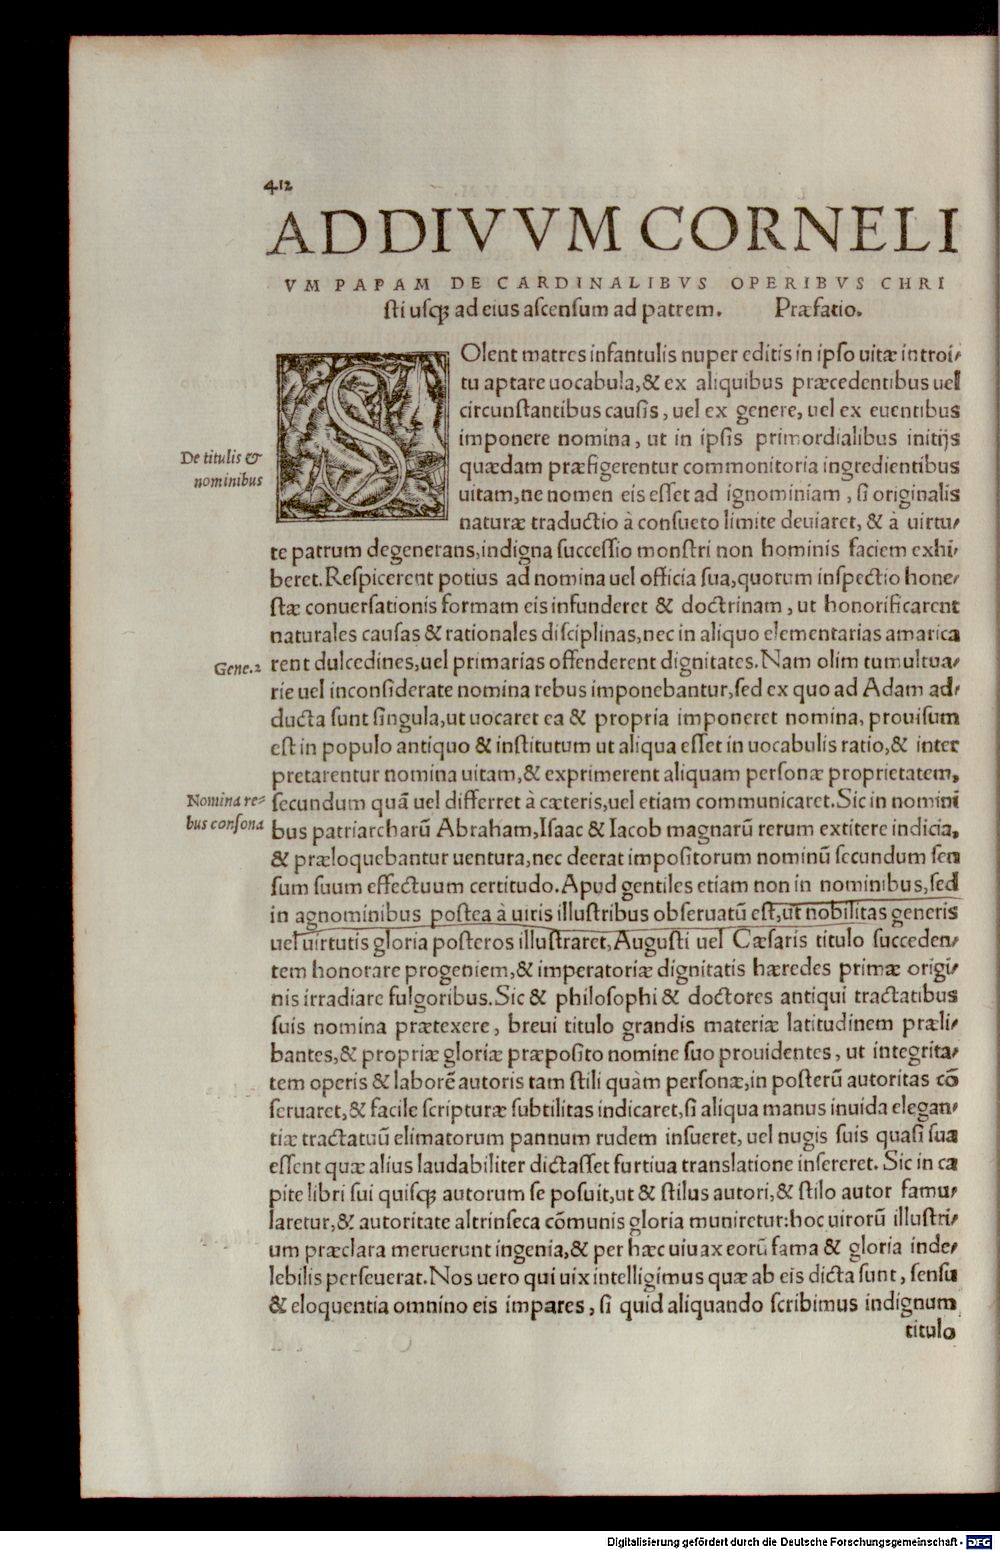 412
AD DIVVM CORNELI
VM PAPAM DE CARDINALIBVS OPERIBVS CHRI
sti usq; ad eius ascensum ad patrem. Præfatio.
SOlent matres infantulis nuper editis in ipso uitæ introi-
tu aptare uocabula, & ex aliquibus præcedentibus uel
circunstantibus causis, uel ex genere, uel ex euentibus
imponere nomina, ut in ipsis primordialibus initijs
De titulis &
nominibus
quædam præfigerentur commonitoria ingredientibus
uitam, ne nomen eis esset ad ignominiam, si originalis
naturæ traductio à consueto limite deuiaret, & à uirtu-
te patrum degenerans, indigna successio monstri non hominis faciem exhi-
beret. Respicerent potius ad nomina uel officia sua, quorum inspectio hone-
stæ conuersationis formam eis infunderet & doctrinam, ut honorificarent
naturales causas & rationales disciplinas, nec in aliquo elementarias amarica
Gene.2
rent dulcedines, uel primarias offenderent dignitates. Nam olim tumultua-
rie uel inconsiderate nomina rebus imponebantur, sed ex quo ad Adam ad-
ducta sunt singula, ut uocaret ea & propria imponeret nomina, prouisum
est in populo antiquo & institutum ut aliqua esset in uocabulis ratio, & inter
pretarentur nomina uitam, & exprimerent aliquam personæ proprietatem,
Nomina re-
bus consona
secundum quã uel differret à cæteris, uel etiam communicaret. Sic in nomini
bus patriarcharũ Abraham, Isaac & Iacob magnarũ rerum extitere indicia,
& præloquebantur uentura, nec deerat impositorum nominũ secundum sen
sum suum effectuum certitudo. Apud gentiles etiam non in nominibus, sed
in agnominibus postea à uiris illustribus obseruatũ est, ut nobilitas generis
uel uirtutis gloria posteros illustraret, Augusti uel Cæsaris titulo succeden-
tem honorare progeniem, & imperatoriæ dignitatis hæredes primæ origi-
nis irradiare fulgoribus. Sic & philosophi & doctores antiqui tractatibus
suis nomina prætexere, breui titulo grandis materiæ latitudinem præli-
bantes, & propriæ gloriæ præposito nomine suo prouidentes, ut integrita-
tem operis & laborẽ autoris tam stili quàm personæ, in posterũ autoritas cõ
seruaret, & facile scripturæ subtilitas indicaret, si aliqua manus inuida elegan-
tiæ tractatuũ elimatorum pannum rudem insueret, uel nugis suis quasi sua
essent quæ alius laudabiliter dictasset furtiua translatione insereret. Sic in ca
pite libri sui quisq; autorum se posuit, ut & stilus autori, & stilo autor famu-
laretur, & autoritate altrinseca cõmunis gloria muniretur: hoc uirorũ illustri-
um præclara meruerunt ingenia, & per hæc uiuax eorũ fama & gloria inde-
lebilis perseuerat. Nos uero qui uix intelligimus quæ ab eis dicta sunt, sensu
& eloquentia omnino eis impares, si quid aliquando scribimus indignum
titulo
Digitalisierung gefördert durch die Deutsche Forschungsgemeinschaft - DFG